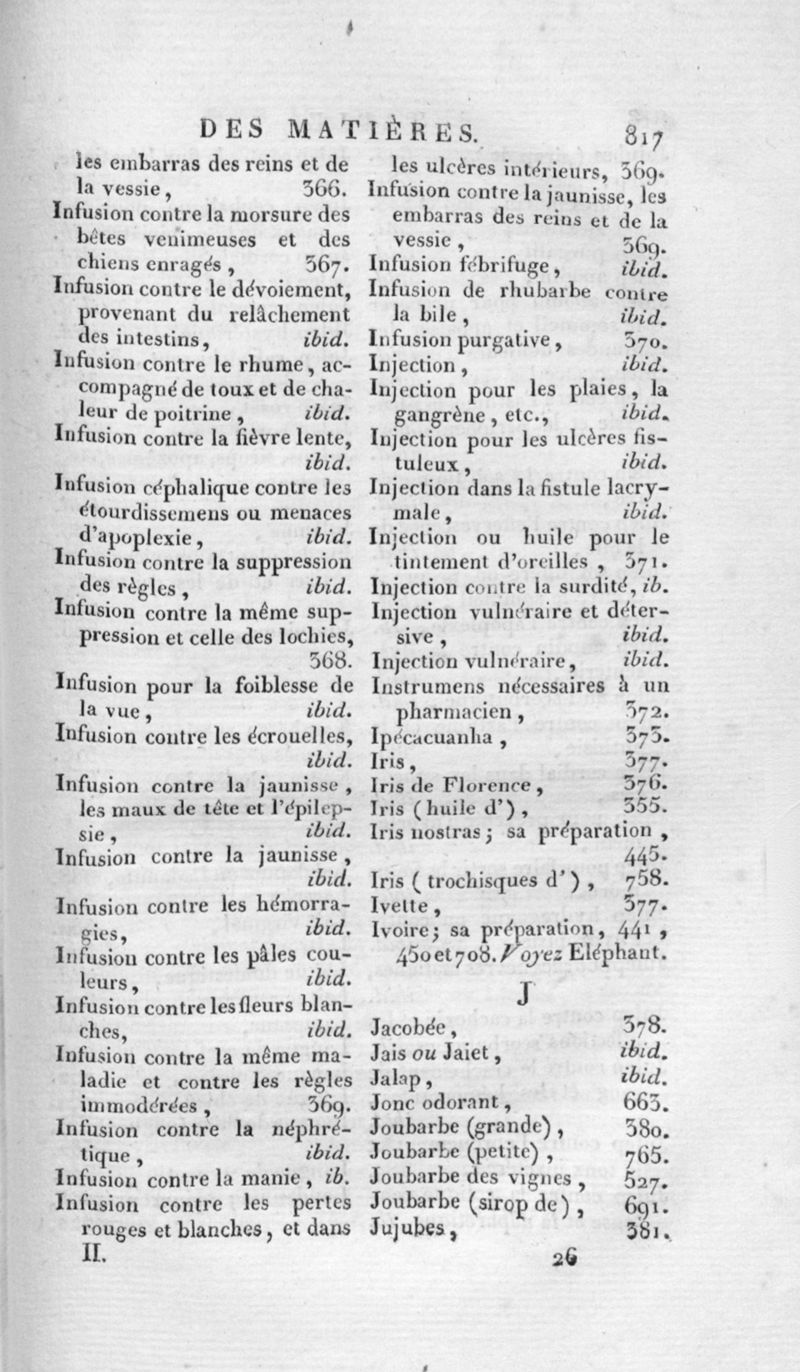 DES MATIÈRES. 817
les embarras des reins et de
la vessie, 366.
Infusion contre la morsure des
bêtes venimeuses et des
chiens enragés, 367.
Infusion contre le dévoiement,
provenant du relâchement
des intestins, ibid.
Infusion contre le rhume, ac-
compagné de toux et de cha-
leur de poitrine, ibid.
Infusion contre la fièvre lente,
ibid.
Infusion céphalique contre les
étourdissemens ou menaces
d'apoplexie, ibid.
Infusion contre la suppression
des règles, ibid.
Infusion contre la même sup-
pression et celle des lochies,
368.
Infusion pour la foiblesse de
la vue, ibid.
Infusion contre les écrouelles,
ibid.
Infusion contre la jaunisse,
les maux de tête et l'épilep-
sie, ibid.
Infusion contre la jaunisse,
ibid.
Infusion contre les hémorra-
gies, ibid.
Infusion contre les pâles cou-
leurs, ibid.
Infusion contre les fleurs blan-
ches, ibid.
Infusion contre la même ma-
ladie et contre les règles
immodérées, 369.
Infusion contre la néphré-
tique, ibid.
Infusion contre la manie, ib.
Infusion contre les pertes
rouges et blanches, et dans
les ulcères intérieurs, 369.
Infusion contre la jaunisse, les
embarras des reins et de la
vessie, 369.
Infusion fébrifuge, ibid.
Infusion de rhubarbe contre
la bile, ibid.
Infusion purgative, 370.
Injection, ibid.
Injection pour les plaies, la
gangrène, etc., ibid.
Injection pour les ulcères fis-
tuleux, ibid.
Injection dans la fistule lacry-
male, ibid.
Injection ou huile pour le
tintement d'oreilles, 371.
Injection contre la surdité, ib.
Injection vulnéraire et déter-
sive, ibid.
Injection vulnéraire, ibid.
Instrumens nécessaires à un
pharmacien, 372.
Ipécacuanha, 373.
Iris, 377.
Iris de Florence, 376.
Iris (huile d'), 355.
Iris nostras; sa préparation,
445.
Iris (trochisques d'), 758.
Ivette, 377.
Ivoire; sa préparation, 441,
450 et 708. Voyez Eléphant.
J
Jacobée, 378.
Jais ou Jaiet, ibid.
Jalap, ibid.
Jonc odorant, 663.
Joubarbe (grande), 380.
Joubarbe (petite), 765.
Joubarbe des vignes, 527.
Joubarbe (sirop de), 691.
Jujubes, 381.
II. 26